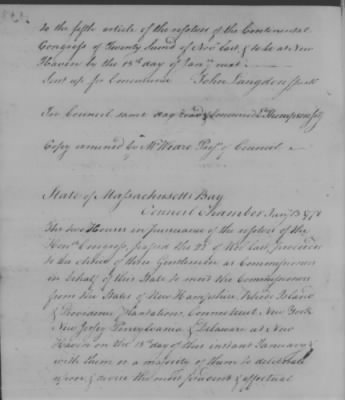 to the fifth article of the resolves of the Continental
Congress of Twenty Second of Novr last & to be at New
Haven by the 15th day of Jany next
Sent up for Concurrence John Langdon Speakr
In Council same day read & concurred E Thompson Secy
Copy examined by Ms Weare Presdt of Council
State of Massachusetts Bay
Council Chamber Jany 13 1778
The two Houses in pursuance of the resolves of the
Honble Congress, passed the 22 of Novr last, proceeded
to the choice of three Gentlemen as Commissioners
in behalf of this State to meet the Commissioners
from the States of New Hampshire, Rhode Island
& Providence Plantations, Connecticut, New York
New Jersey Pennsylvania & Delaware at New
Haven on the 15th day of this instant January &
with them or a majority of them to deliberate
upon & devise the most prudent & effectual